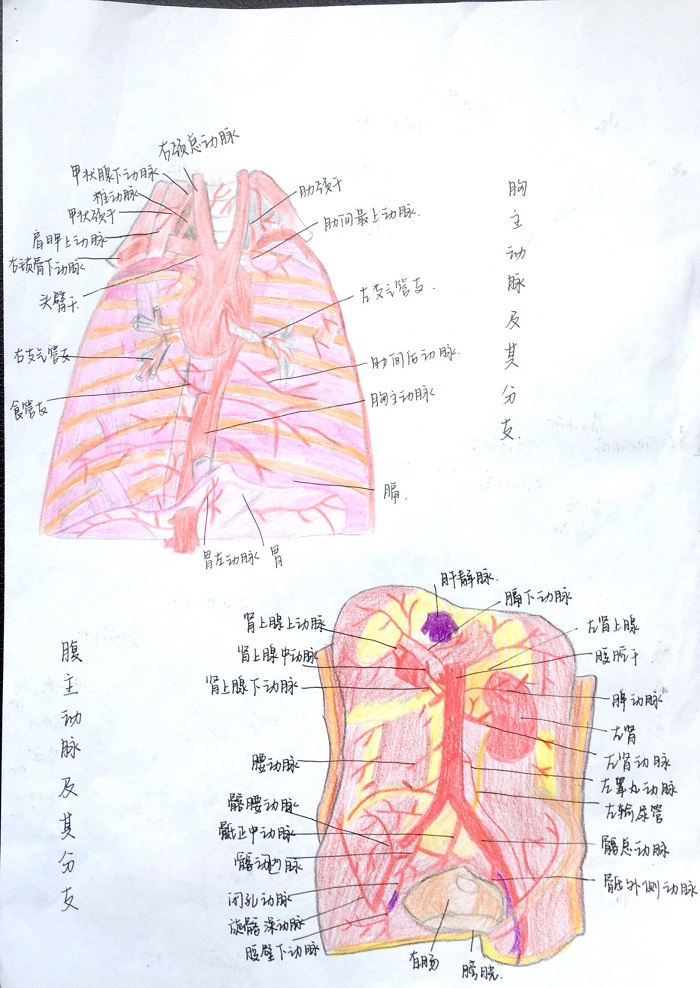 右颈总动脉
甲状腺下动脉
椎动脉
甲状颈干
肩胛上动脉
右锁骨下动脉
头臂干
右支气管支
食管支
肋颈干
肋间最上动脉
左支气管支
肋间后动脉
胸主动脉
膈
胃左动脉
胃
胸主动脉及其分支
腹主动脉及其分支
肝静脉
膈下动脉
肾上腺上动脉
肾上腺中动脉
肾上腺下动脉
腰动脉
髂腰动脉
骶正中动脉
闭孔动脉
旋髂深动脉
腹壁下动脉
左肾上腺
腹腔干
脾动脉
左肾
左肾动脉
左睾丸动脉
左输尿管
髂总动脉
骶外侧动脉
膀胱